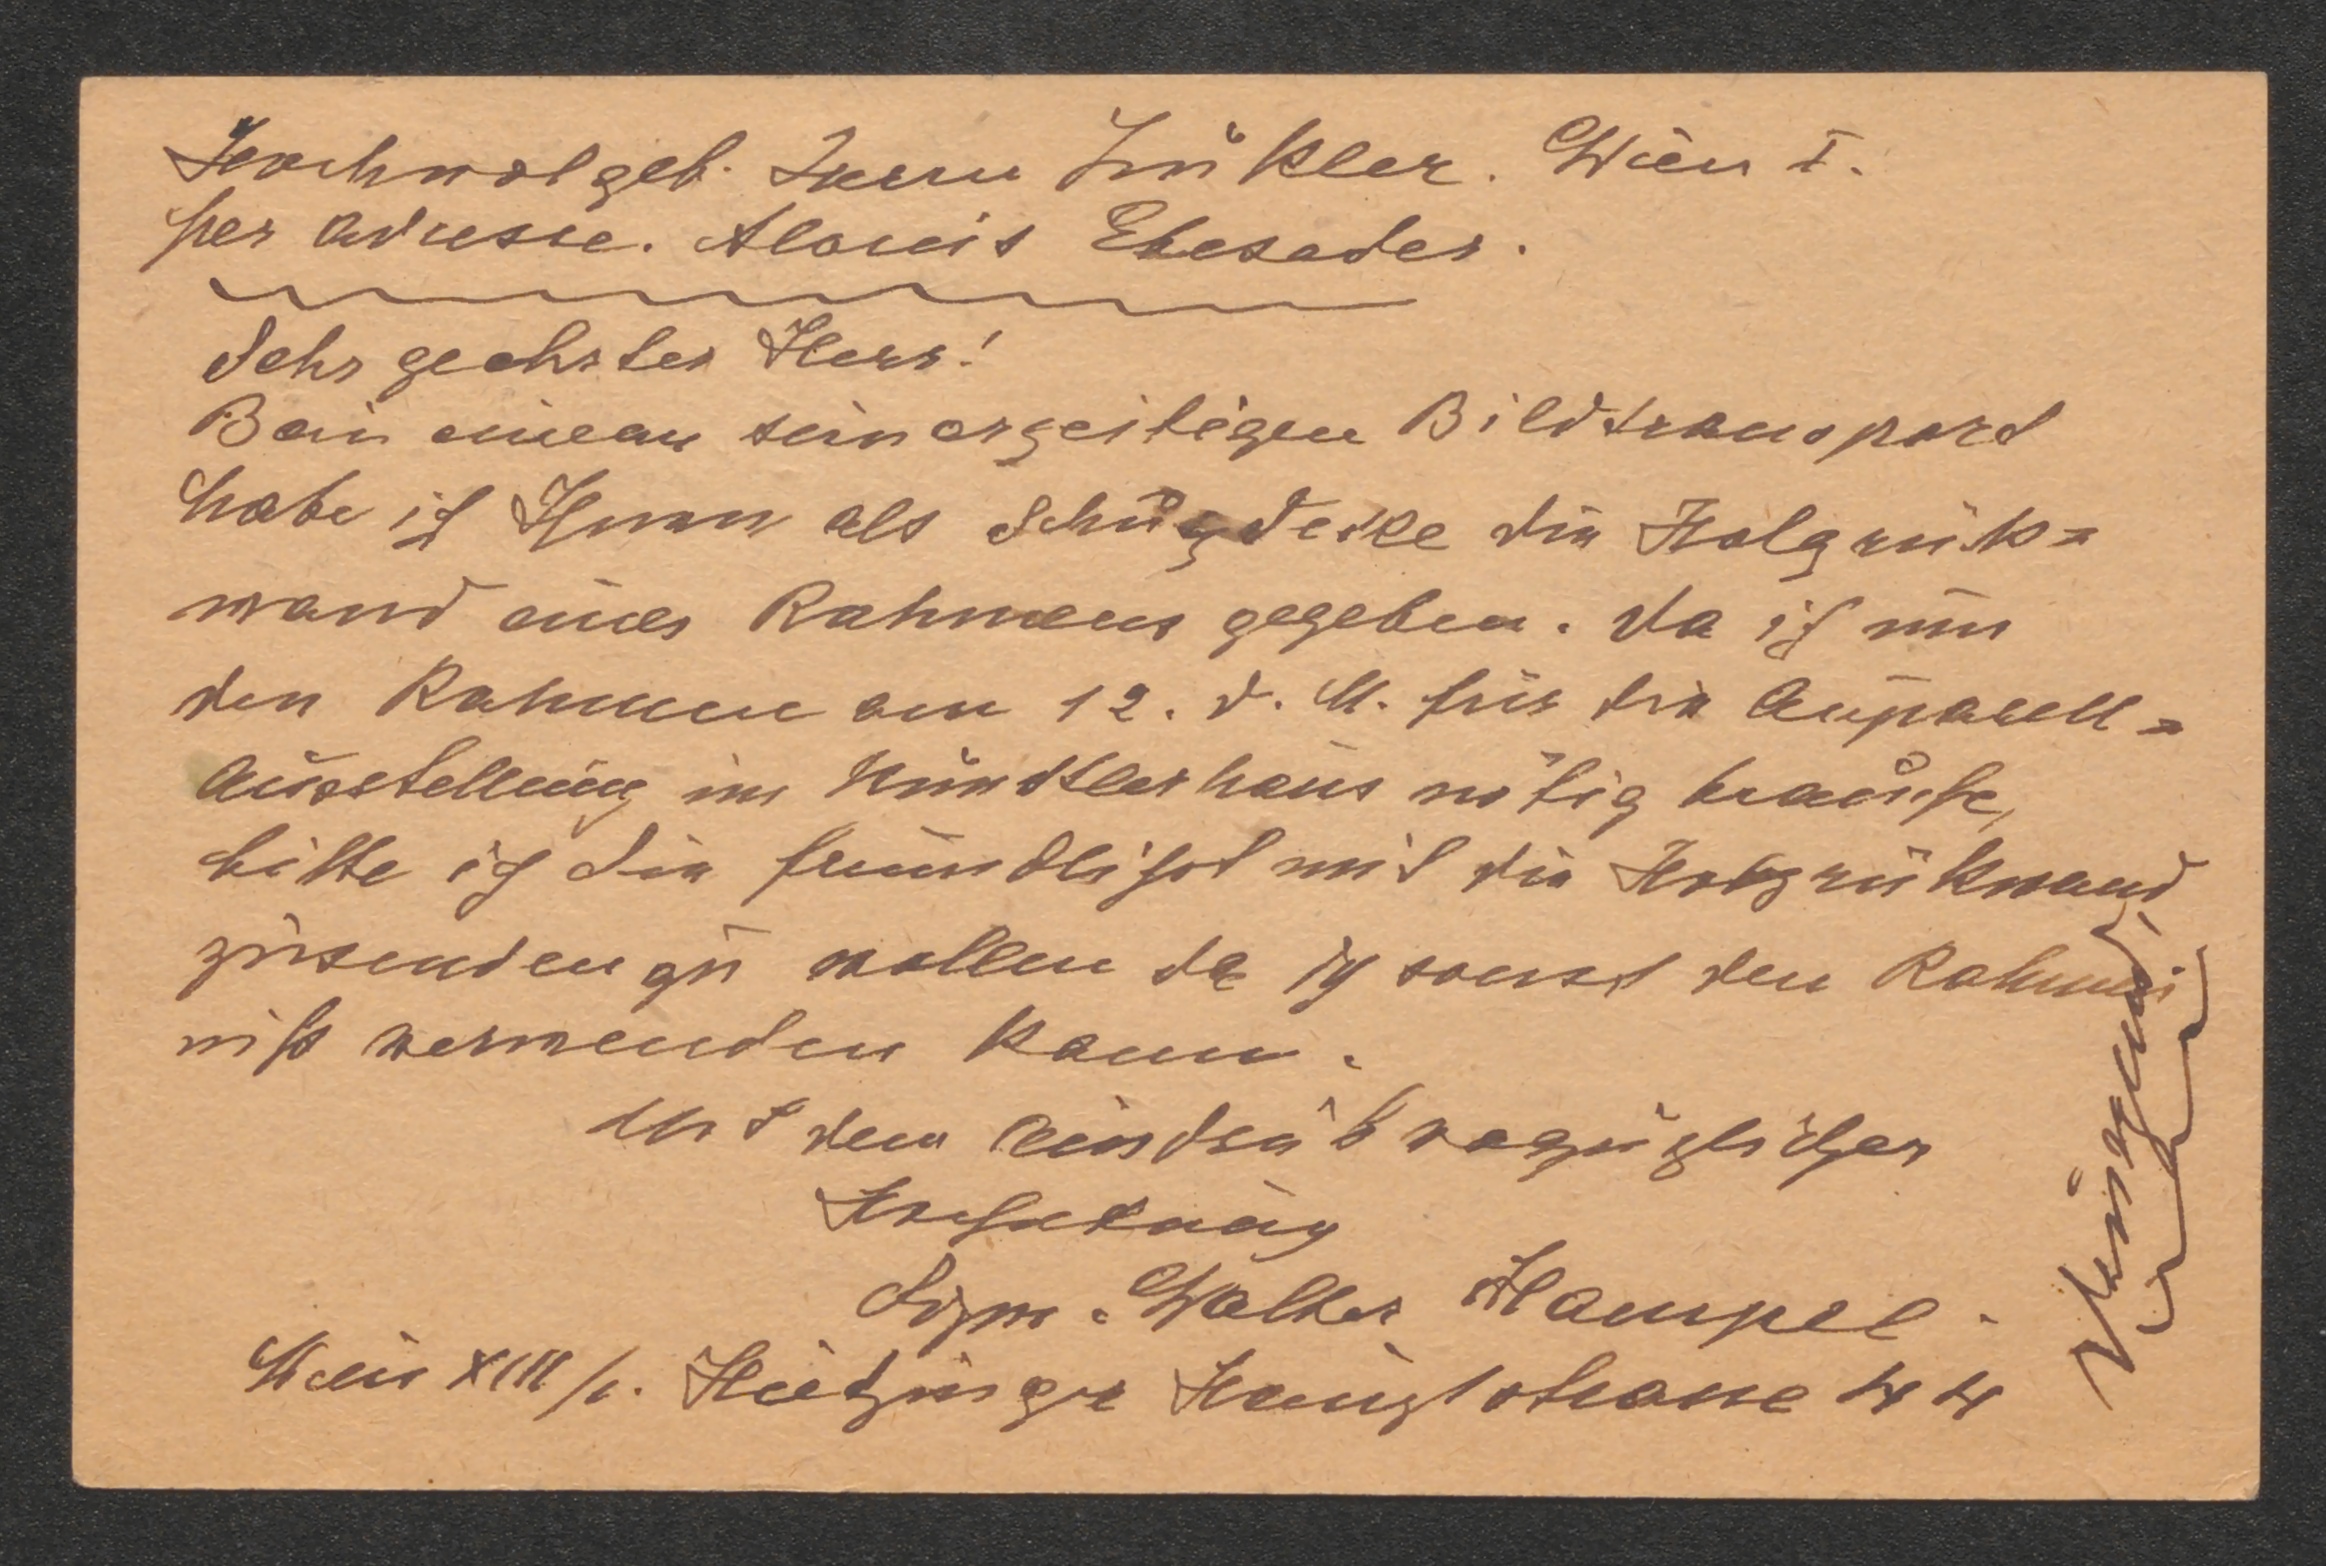 Hochwolgeb. Herrn Zükler. Wien I.
per Adresse. Alouis Ebeseder.
Sehr geehrter Herr!
Bein einem seinerzeitigen Bildtransport
habe ich Ihnen als Schuzdecke die Holzrük=
wand eines Rahmens gegeben. Da ich nun
den Rahmen am 12. d. M. für die Aquarell=
Ausstellung im Künstlerhaus nötig brauche,
bitte ich Sie freundlichst mit die Holzrükwand
zusenden zu wollen da ich sonst den Rahmen
nicht verwenden kann.
Mit dem Ausdruk vorzüglicher
Hochachtung
Sigm. Walter Hampel.
Wien XIII/1. Hietzinger Hauptstrasse 44
Dringend!